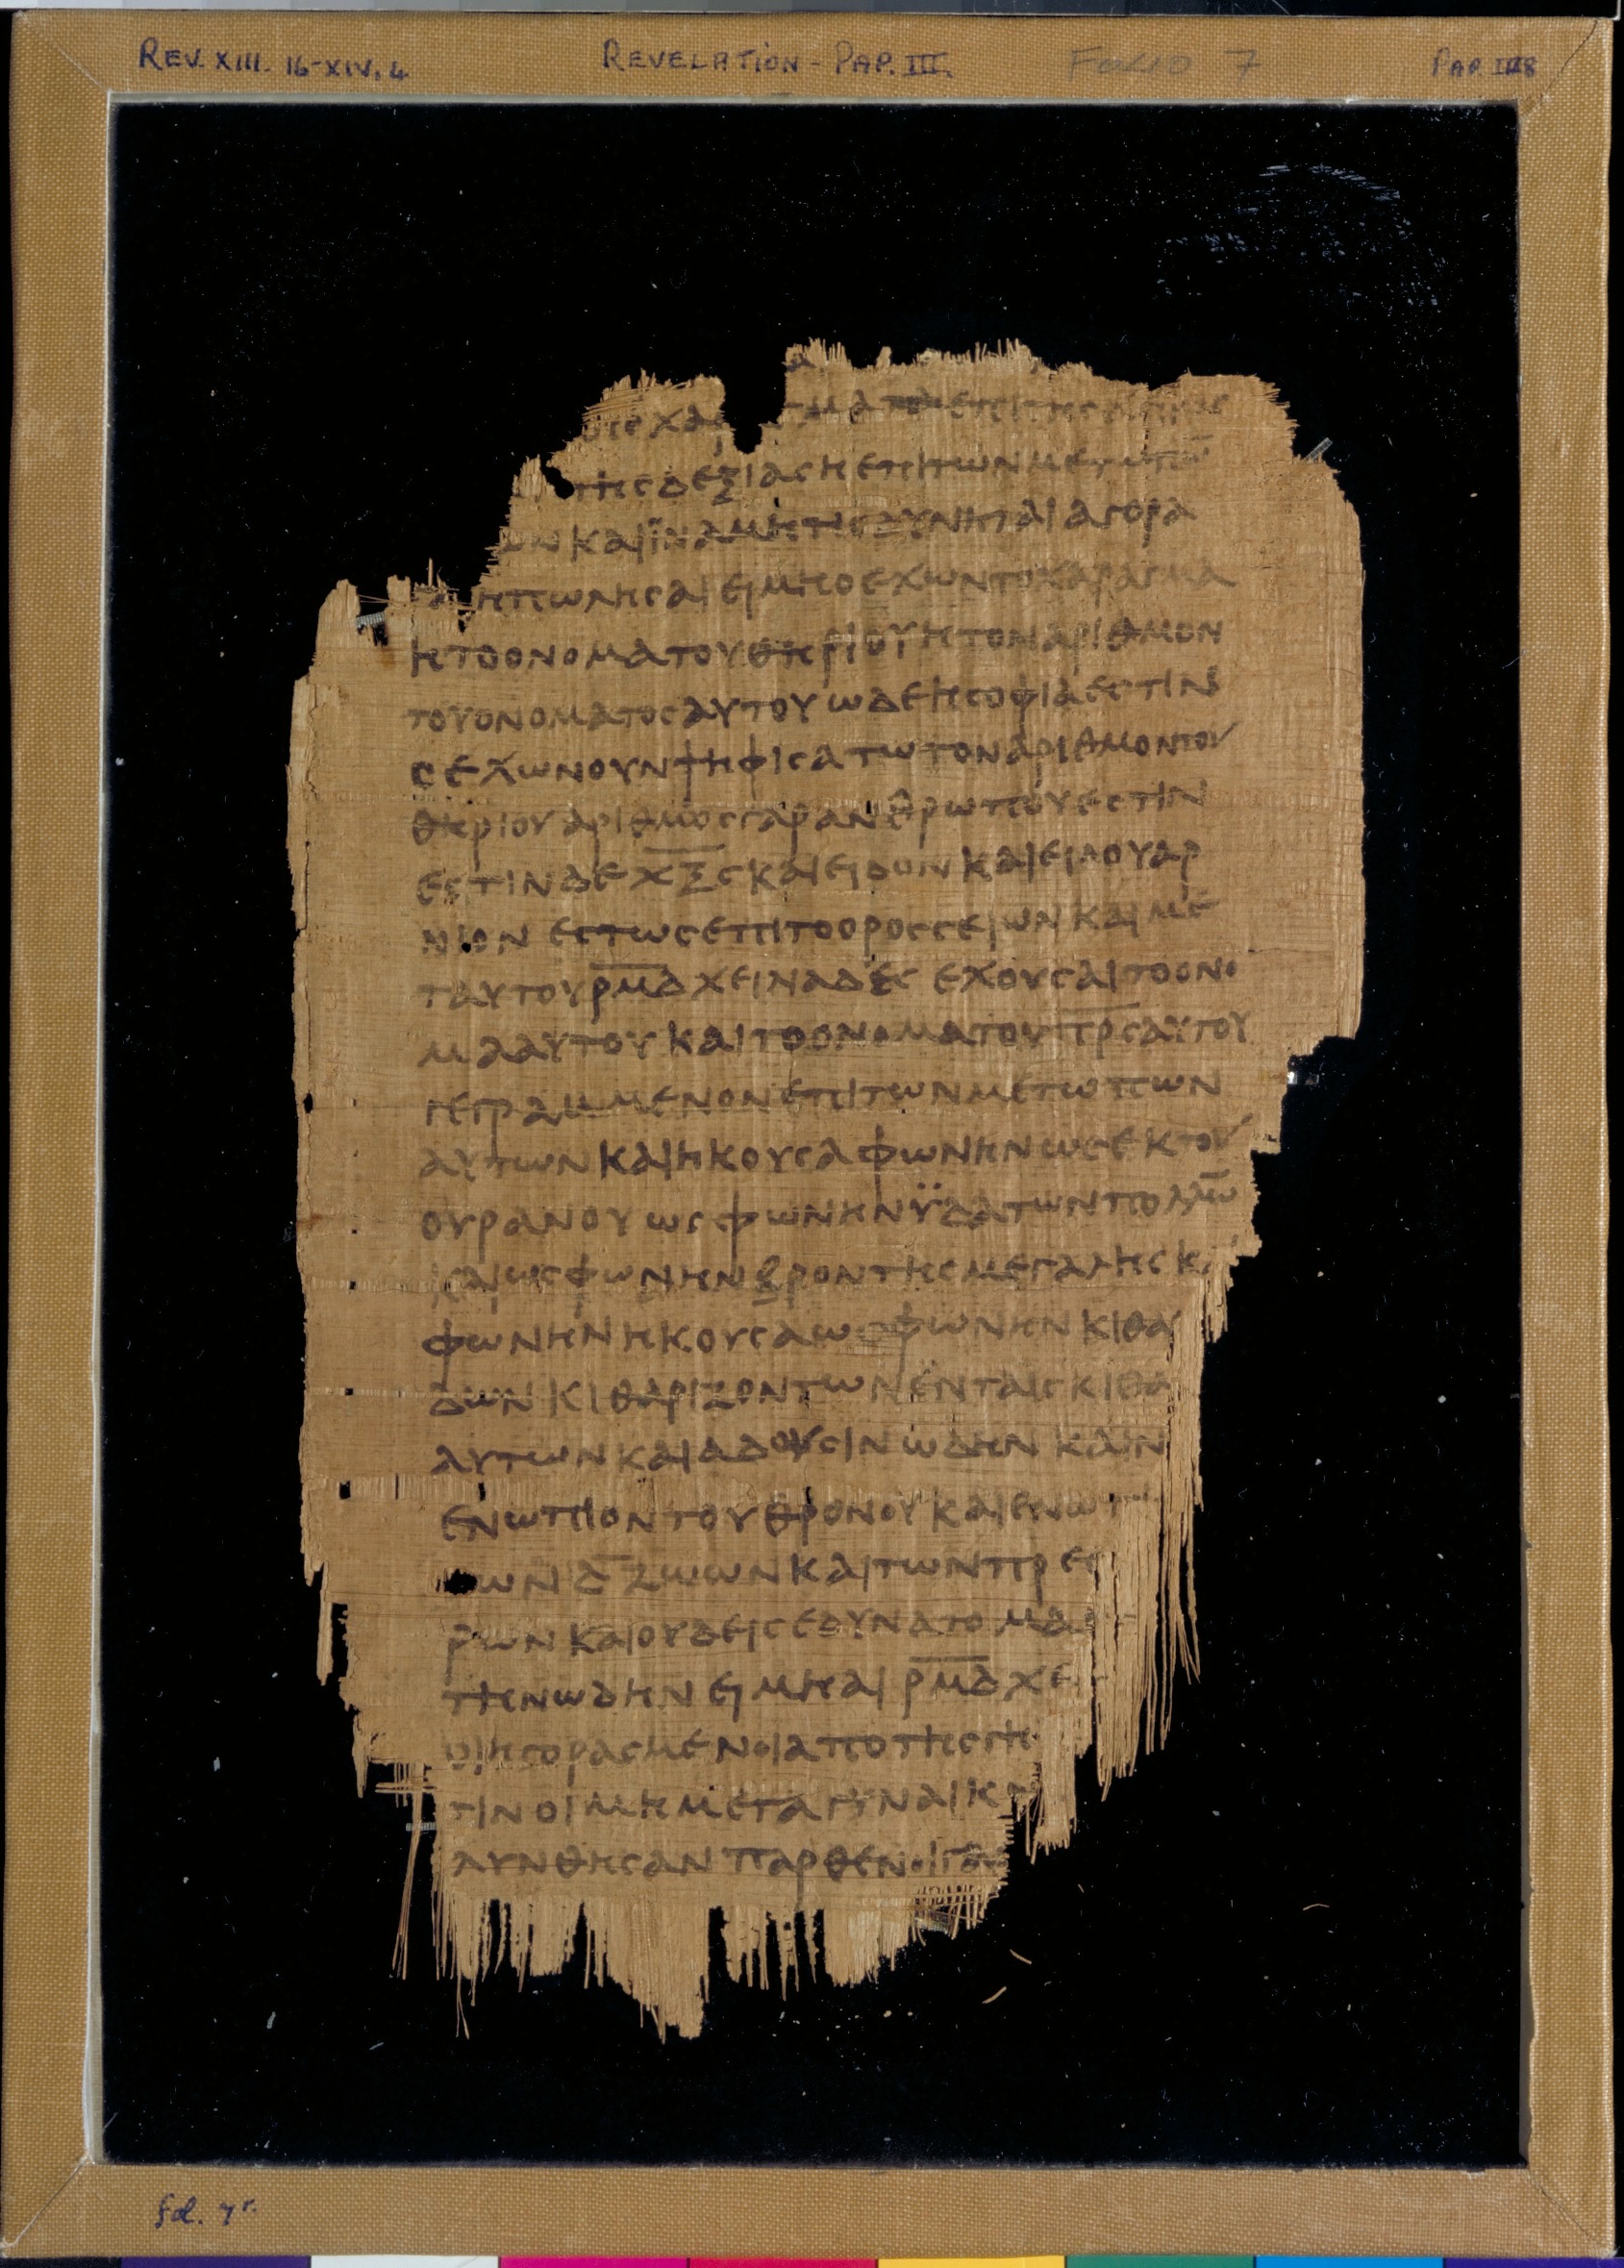 REV. XIII. 16-XIV. 4 REVELATION - PAP. III. FOLIO 7
α
ματα επι της
της δεξιας η επι των μετωπ
ων και ϊνα μητις δυνηται αγορα
η πωλησαι ει μη ο εχων το χαραγμα
η το ονομα του θηριου η τον αριθμον
του ονοματος αυτου ωδε η σοφια εστιν ο
ς εχων ουν ψηφισατω τον αριθμον του
θηριου αριθμος γαρ ανθρωπου εστιν
εστιν δε χ̅ξ̅ϛ̅ και ειδον και ειδου αρ
νιον εστως επι το ορος σειων και με
τ αυτου ρ̅μ̅δ̅ χειναδες εχουσαι το ονο
μα αυτου και το ονομα του π̅ρ̅ς̅ αυτου
γεγραμμενον επι των μετωπων
αυτων και ηκουσα φωνην ως εκ του
ουρανου ως φωνην ϋδατων πολλω̅
και ως φωνην βροντης μεγαλης κ
φωνην ηκουσα ως φωνην κιθα
δων κιθαριζοντων εν ταις κιθα
αυτων και αδουσιν ωδην καιν
ενωπιον του θρονου και ενωπι
ων δ̅ ζωων και των πρεσ
ρων και ουδεις εδυνατο μα
την ωδην ει μη αι ρ̅μ̅δ̅ χε
οι ηγορασμενοι απο της γη
τιν οι μη μετα γυναικ
λυνθησαν παρθενοι γα
fol. 7r.